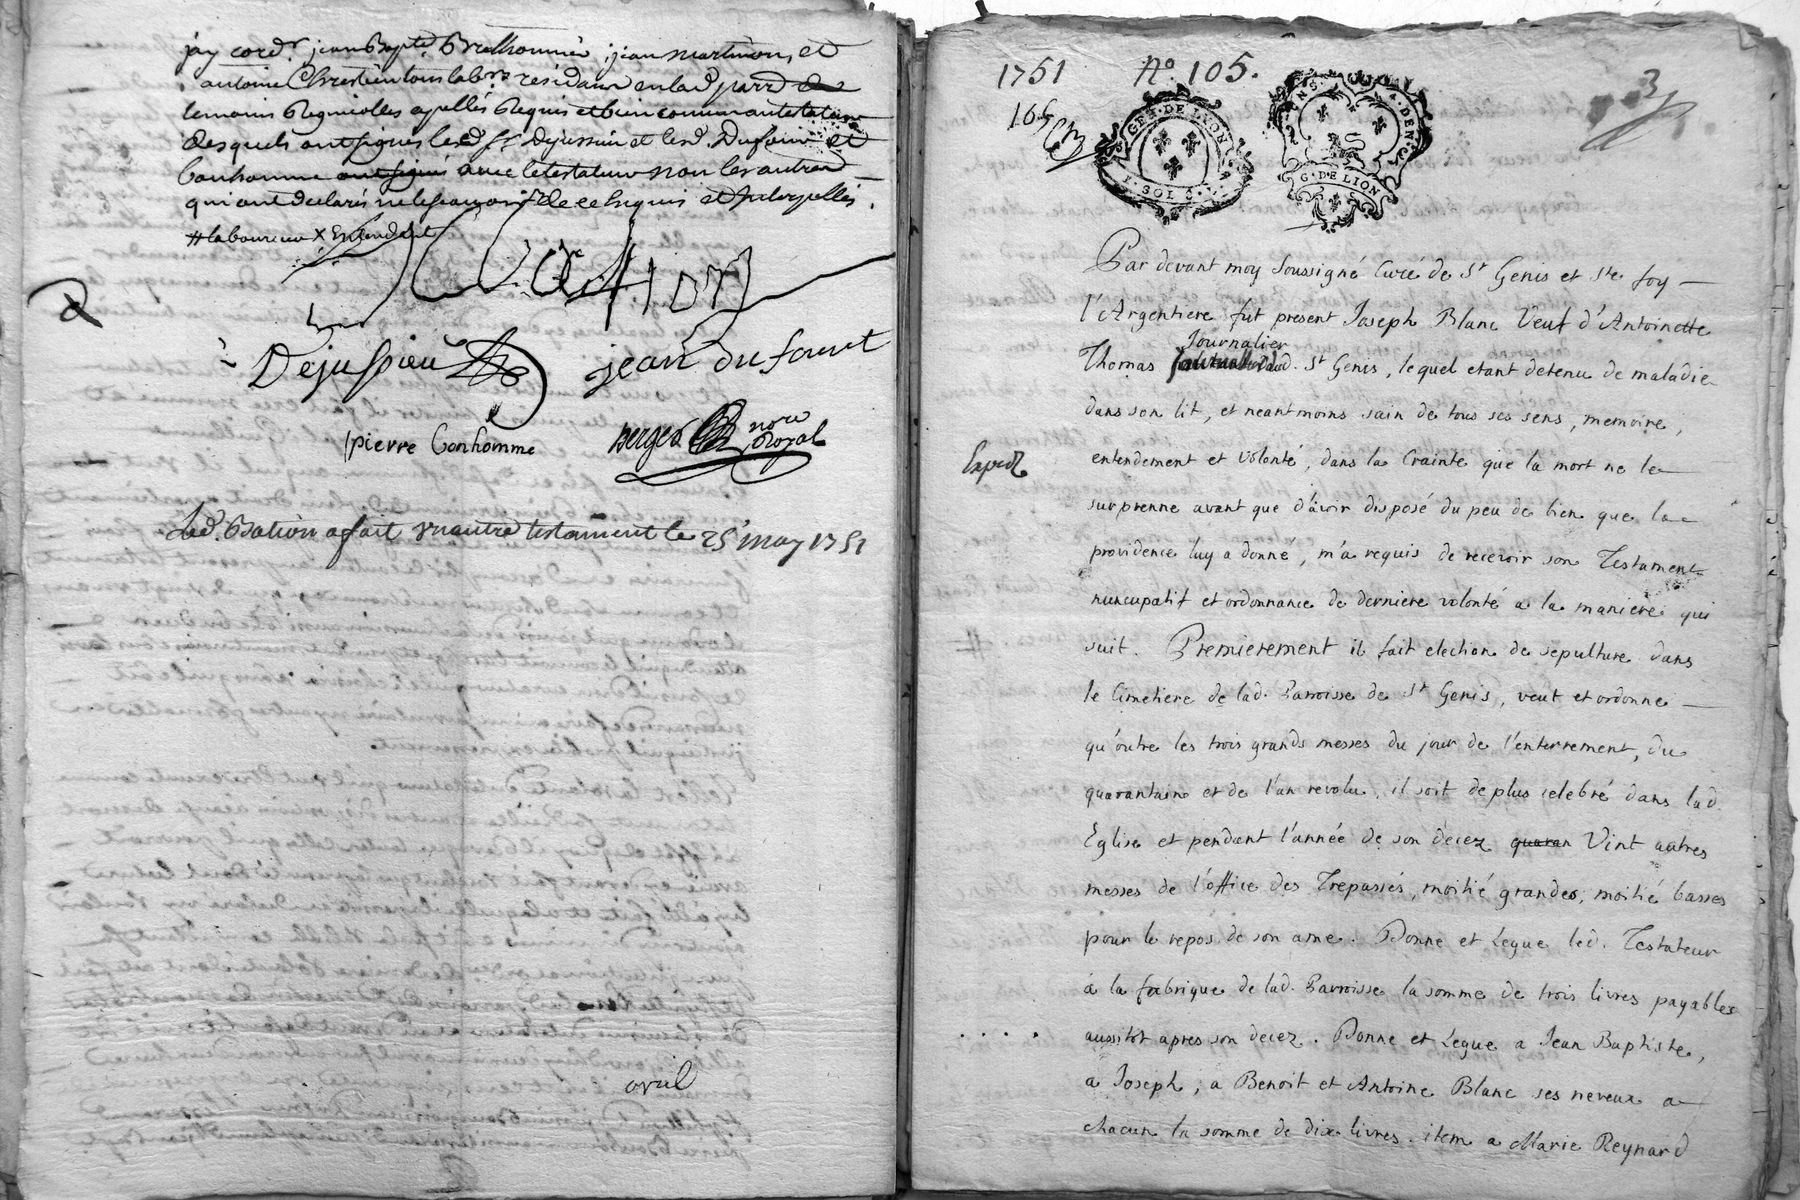 jay cord.r jean Bapte. Brulhommée, jean martinon, et
antoine Chrestien tous labrs. residants en lad. parre. de
temoins Regnicolles apellés Requis et bien connus au testateur
desquels ont signés led. Sr. Dejussieu et led. Dufour et
bonhomme ont signés avec le testateur non les autres
qui ont declarés ne le scavoir de ce Enquis et Interpellés.
# laboureur X Entendant
Dejussieu jean dufournt
pierre bonhomme berger nore Royal
Led. Bation a fait un autre testament le 25 may 1751
avril
1751 No. 105. 3
165
GEN. DE LYON
1. SOL 4.
G. DE LION
Par devant moy soussigné Curé de St Genis et Ste foy
l'Argentiere fut present Joseph Blanc Veuf d'Antoinette
Journalier
Thomas dud. St Genis, lequel etant detenu de maladie
dans son lit, et neantmoins sain de tous ses sens, memoire,
entendement et volonté, dans la Crainte que la mort ne le
Exped
surprenne avant que d'avoir disposé du peu de bien que la
providence luy a donné, m'a requis de recevoir son Testament
nuncupatif et ordonnance de derniere volonté a la maniere qui
suit. Premierement il fait election de sepulture dans
le Cimetiere de lad. Parroisse de St Genis, veut et ordonne
qu'outre les trois grands messes du jour de l'enterrement, du
quarantain et de l'an revolu, il soit de plus celebré dans lad.
Eglise et pendant l'année de son decez quaran Vint autres
messes de l'office des Trepassés, moitié grandes, moitié basses
pour le repos de son ame. Donne et Legue led. Testateur
à la fabrique de lad. Parroisse la somme de trois livres payables
aussitot apres son decez. Donne et Legue a Jean Baptiste,
a Joseph, a Benoit et Antoine Blanc ses neveux a
chacun la somme de dix livres. item a Marie Reynard